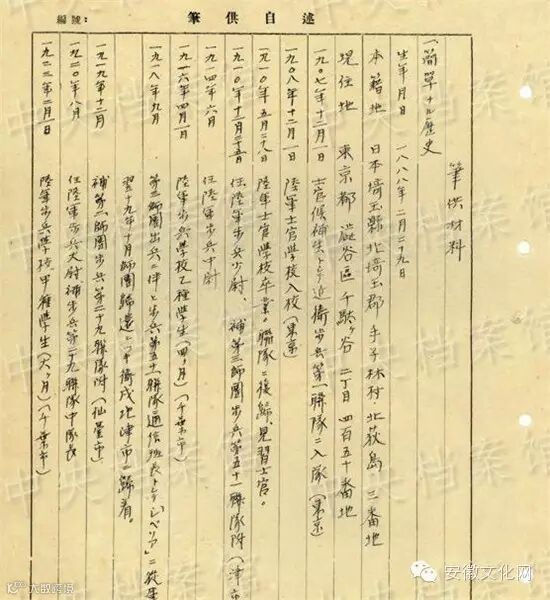 編號:
筆供自述
筆供材料
一、簡單ナル歴史
生年月日 一八八八年二月二十九日
本籍地 日本埼玉縣北埼玉郡手子林村北荻島三番地
現住地 東京都澁谷區千駄ヶ谷二丁目四百五十番地
一九〇七年十二月一日 士官候補生トシテ近衛步兵第一聯隊ニ入隊(東京)
一九〇八年十二月一日 陸軍士官學校入校(東京)
一九一〇年五月二十八日 陸軍士官學校卒業。聯隊ニ復歸、見習士官。
一九一〇年十二月二十五日 任陸軍步兵少尉、補第三師團步兵第五十一聯隊附(津市
一九一四年六月 任陸軍步兵中尉
一九一六年四月一日 陸軍步兵學校乙種學生(四ヶ月)(千葉市)
一九一八年九月 第三師團出兵ニ伴ヒ步兵第五十一聯隊通信班長トシテ「シベリア」ニ從軍
翌十九年十月師團歸還ニツキ衛戍地津市ニ歸着。
一九一九年十二月 補第二師團步兵第二十九聯隊附(仙臺市)
一九二〇年八月 任陸軍步兵大尉補步兵第二十九聯隊中隊長
一九二二年二月一日 陸軍步兵學校甲種學生(六ヶ月)(千葉市)
安徽文化网